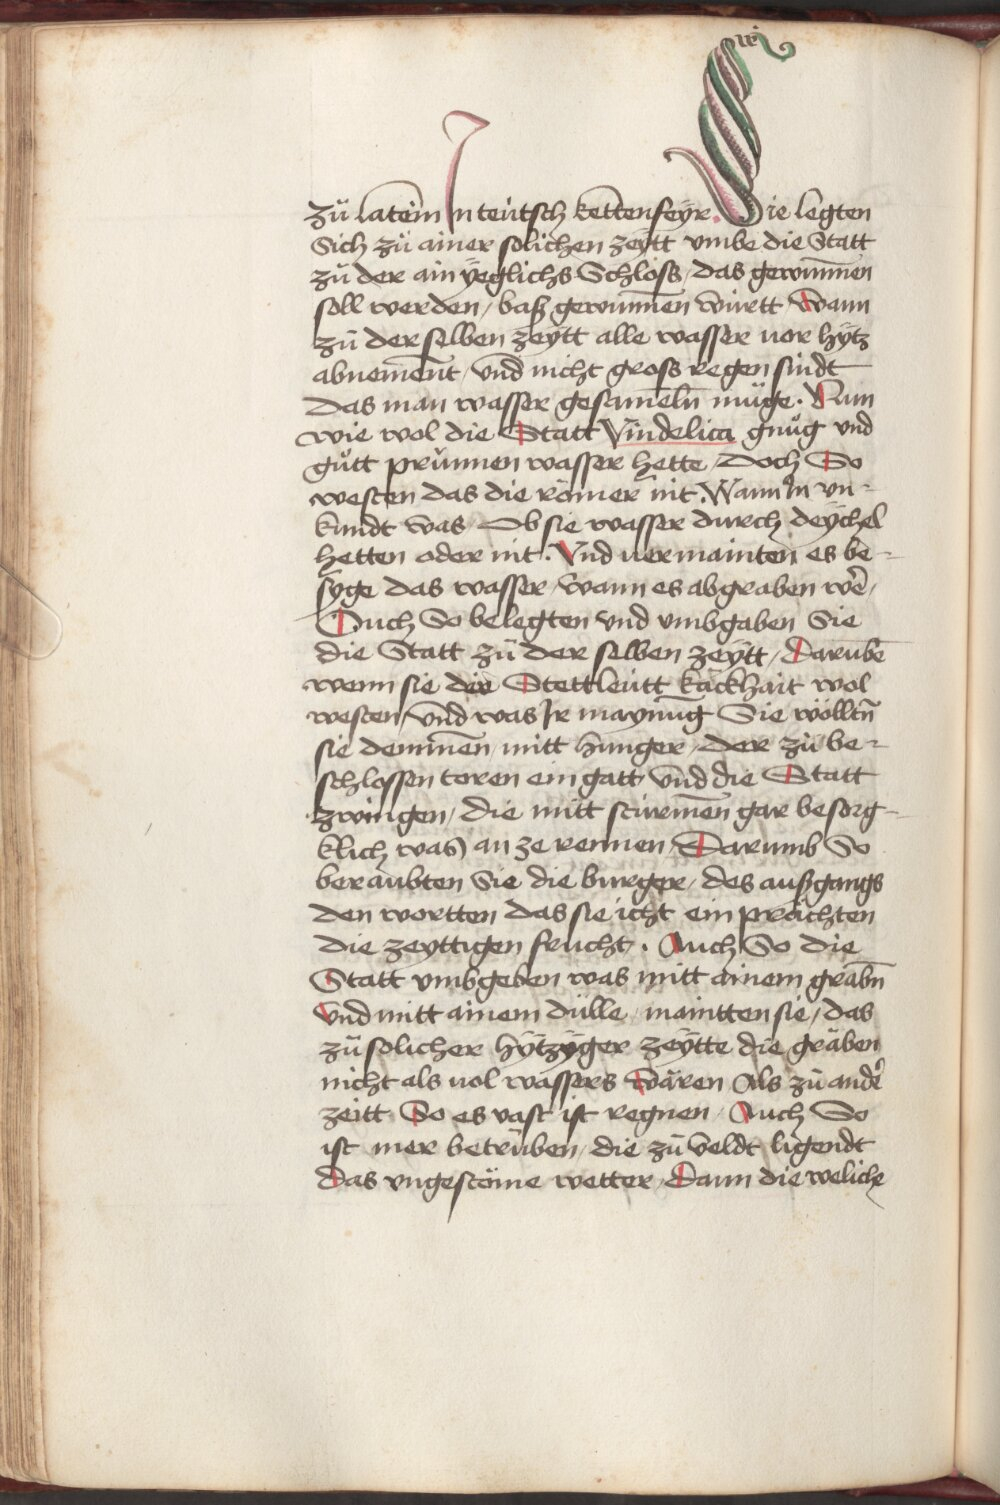 zů latein In teütsch kettenfeÿr. Sie legten
Sich zů ainer solichen zeÿtt vmbe die Statt
zů der ain ÿeglichs Schloss, das gewun̄nen
soll werden, baß gewun̄nen württ Wann
zů der selben zeÿtt alle wasser uor hÿtz
abnemēnt, vnd nicht gross regen sindt
das man wasser gesamēln müge. Nun
wie wol die Statt Vindelica gnůg vnd
gůtt prünnen wasser hette, Doch So
westen das die römer nit. Wann In vn-
kundt was, Ob sie wasser durch deÿchel
hetten oder nit. Vnd uermainten es be-
syge das wasser, wann es abgraben wer̄,
Auch So belegten vnd vmbgaben Sie
die Statt zů der selben zeÿtt, Darumbē
wenn sie der Stettleütt käckhait wol
westen, vnd was Ir maynūng Sie wölltn̄
sie dem̄men, mitt hunger, der zů be-
schlossen toren ein gatt vnd die Statt
zwingen, die mitt sturmēn gar besorg-
klich was an ze rennen, Darumb So
beraubten Sie die burger, des außgangs
den wortten das sie icht ein prächten
die zeyttigen frucht. Auch So die
Statt vmbgeben was mitt ainem grabn̄
vnd mitt ainem dülle, maintten sie, das
zů solicher hÿtzÿger zeÿtte die gräben
nicht als uol wassers wären Als zů ander̄
zeitt So es vast ist regnen, Auch So
ist mer betrüben, die zů veldt ligendt
das vngestöme wetter, Dann die weliche